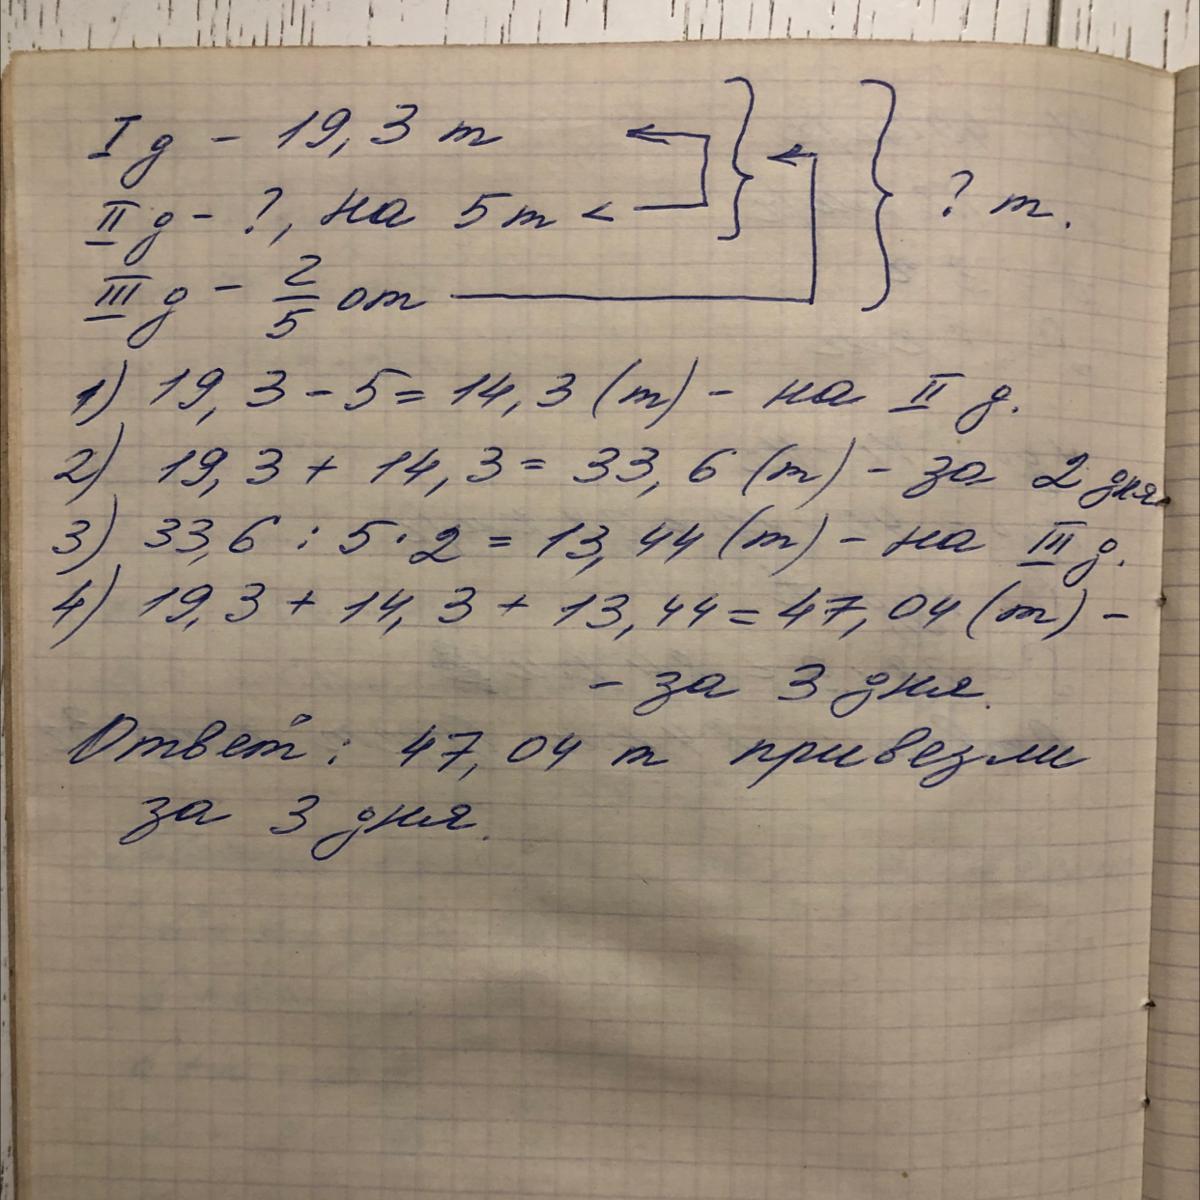 I д - 19,3 т
II д - ?, на 5 т <
III д - 2/5 от
? т.
1) 19,3 - 5 = 14,3 (т) - на II д.
2) 19,3 + 14,3 = 33,6 (т) - за 2 дня
3) 33,6 : 5 · 2 = 13,44 (т) - на III д.
4) 19,3 + 14,3 + 13,44 = 47,04 (т) -
- за 3 дня.
Ответ: 47,04 т привезли
за 3 дня.